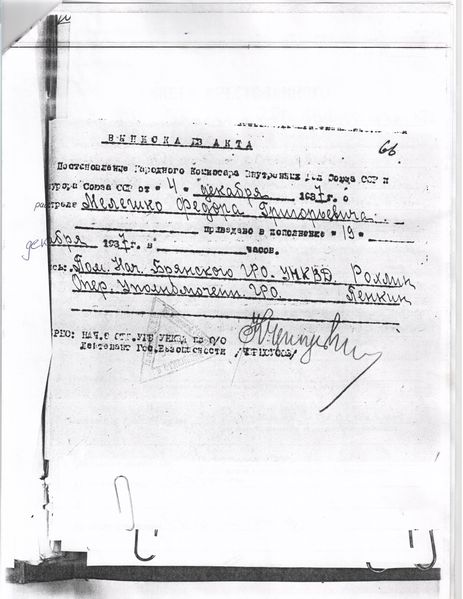 ВЫПИСКА ИЗ АКТА
66
Постановление Народного Комиссара Внутренних Дел Союза ССР и
курора Союза ССР от " 4 " декабря 1937г. о
расстреле Мелешко Федора Григорьевича
приведено в исполнение " 19 "
декабря 1937г. в часов.
сь: Пом. Нач. Брянского ГРО. УНКВД Рохлин
Опер. Уполномочен. ГРО. Пенкин
ЕРНО: НАЧ. 8 ОТД. УГБ УНКВД по О/О
Лейтенант Гос. Безопасности